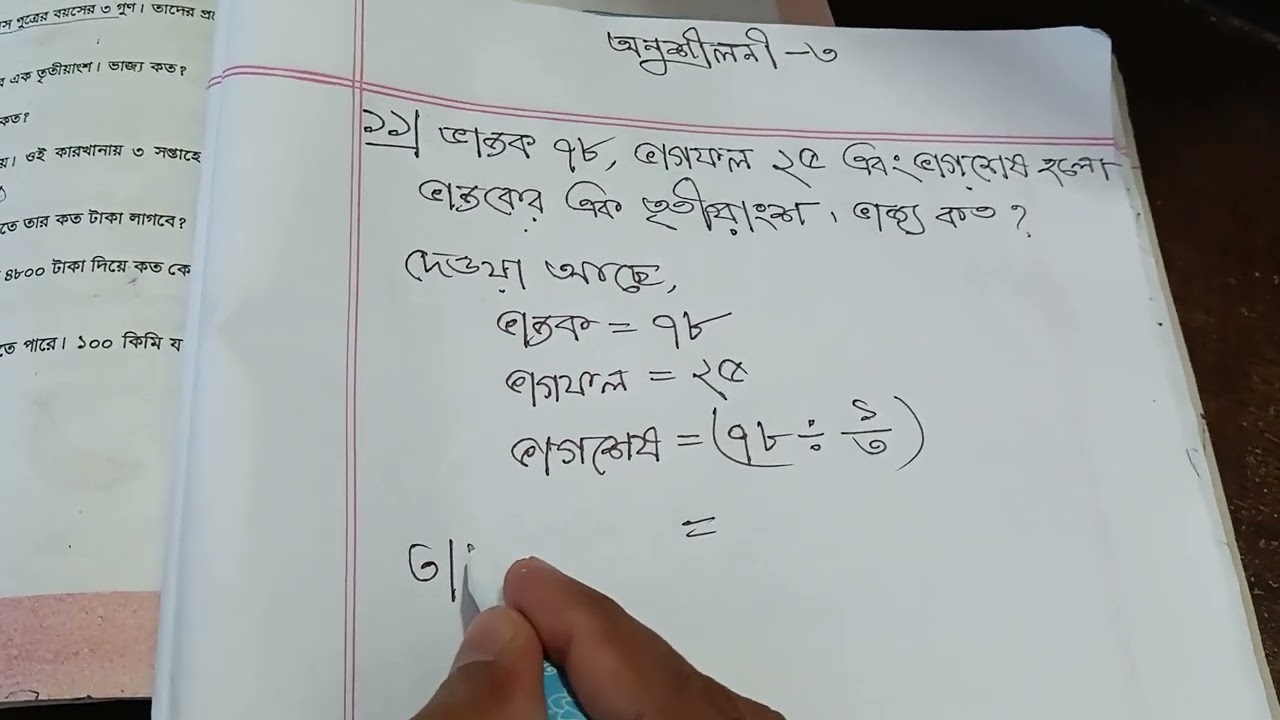 পুত্রের বয়সের ৩ গুণ। তাদের
এক তৃতীয়াংশ। ভাজ্য কত?
কত?
ওই কারখানায় ৩ সপ্তাহে
তার কত টাকা লাগবে?
৪৮০০ টাকা দিয়ে কত কে
পারে। ১০০ কিমি য
অনুশীলনী -৩
১১। ভাজক ৭৮, ভাগফল ২৫ এবং ভাগশেষ হলো
ভাজকের এক তৃতীয়াংশ। ভাজ্য কত?
দেওয়া আছে,
ভাজক = ৭৮
ভাগফল = ২৫
ভাগশেষ = (৭৮ ÷ ১/৩)
=